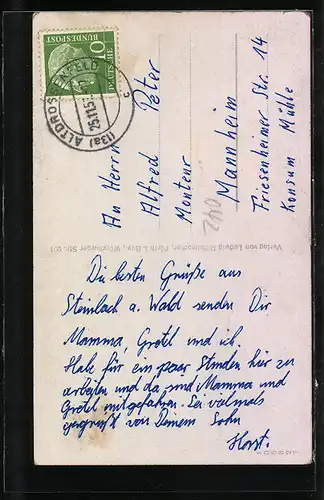 Die besten Grüße aus
Steinbach a. Wald senden Dir
Mamma, Gretel und ich.
Habe für ein paar Stunden hier zu
arbeiten und da sind Mamma und
Gretel mitgefahren. Sei vielmals
gegrüßt von Deinem Sohn
Horst.
An Herrn
Alfred Peter
Monteur
Mannheim
Friesenheimer Str. 14
Konsum Mühle
Verlag von Ludwig Riffelmacher, Fürth i. Bay., Würzburger Str.
10
DEUTSCHE
BUNDESPOST
(13a) ALTDROSSENFELD
25.11.5
c